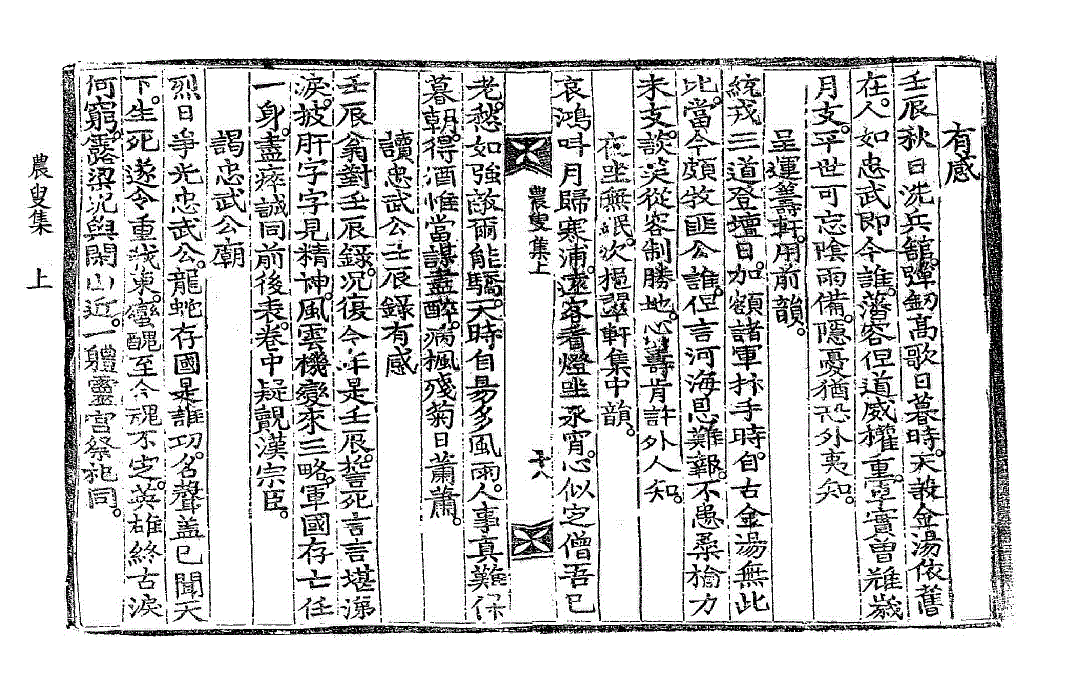 有感
壬辰秋日洗兵館。彈劒高歌日暮時。天設金湯依舊
在。人如忠武即今誰。藩容但道威權重。宰實曾難歲
月支。平世可忘陰雨備。隱憂猶恐外夷知。
呈運籌軒。用前韻。
統戎三道登壇日。加額諸軍抃手時。自古金湯無此
比。當今頗牧匪公誰。但言河海恩難報。不患桑榆力
未支。談笑從容制勝地。心籌肯許外人知。
夜坐無眠。次挹翠軒集中韻。
哀鴻呌月歸寒浦。遠客看燈坐永宵。心似定僧吾已
老。愁如強敵爾能驕。天時自易多風雨。人事真難保
暮朝。得酒惟當謀盡醉。病楓殘菊日蕭蕭。
讀忠武公壬辰錄有感
壬辰翁對壬辰錄。况復今年是壬辰。誓死言言堪涕
淚。披肝字字見精神。風雲機變來三略。軍國存亡任
一身。盡瘁誠同前後表。卷中疑覿漢宗臣。
謁忠武公廟
烈日爭光忠武公。龍蛇存國是誰功。名聲盖已聞天
下。生死遂令重我東。蠻醜至今魂不定。英雄終古淚
何窮。露梁況與閑山近。一軆靈宮祭祀同。
農叟集上
十八
農叟集 上